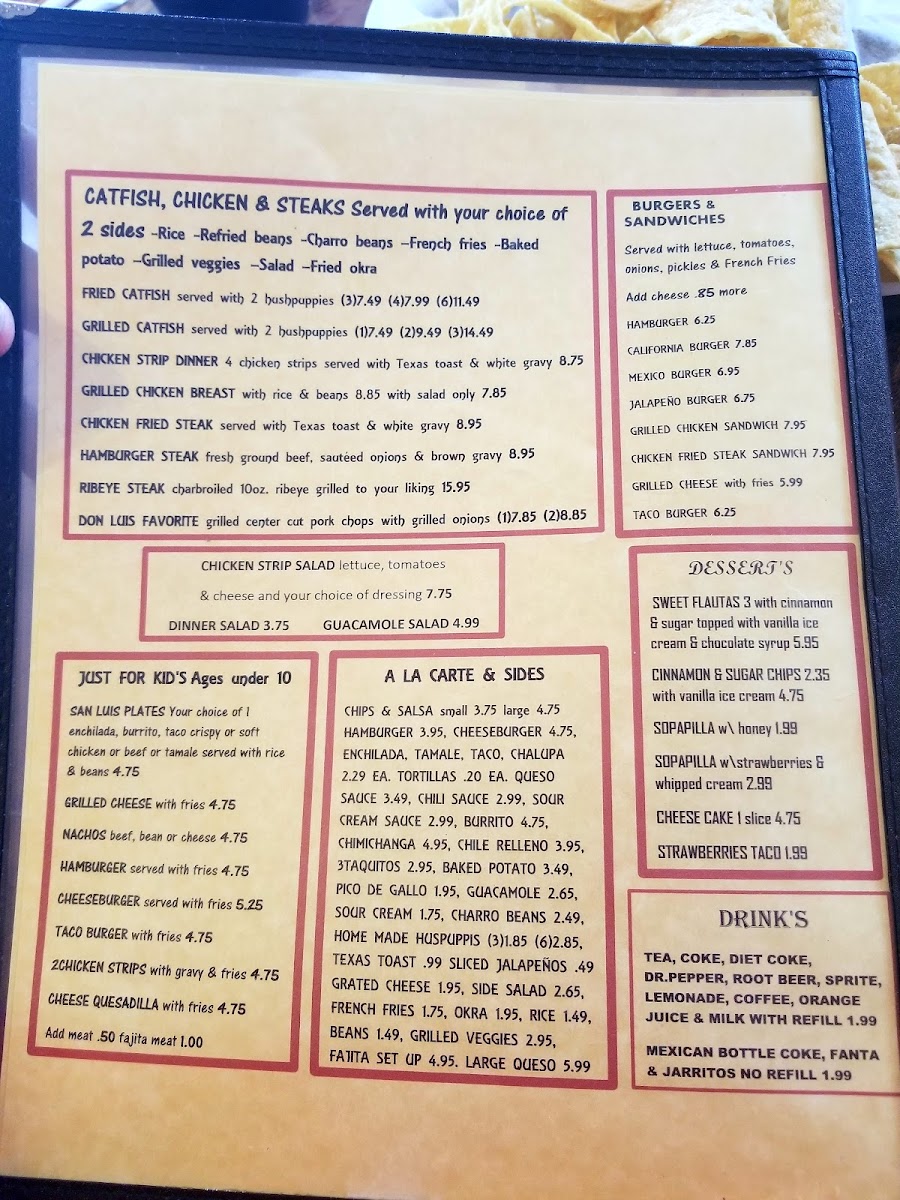 CATFISH, CHICKEN & STEAKS Served with your choice of
2 sides -Rice -Refried beans -Charro beans –French fries -Baked
potato –Grilled veggies –Salad –Fried okra
FRIED CATFISH served with 2 hushpuppies (3)7.49 (4)7.99 (6)11.49
GRILLED CATFISH served with 2 hushpuppies (1)7.49 (2)9.49 (3)14.49
CHICKEN STRIP DINNER 4 chicken strips served with Texas toast & white gravy 8.75
GRILLED CHICKEN BREAST with rice & beans 8.85 with salad only 7.85
CHICKEN FRIED STEAK served with Texas toast & white gravy 8.95
HAMBURGER STEAK fresh ground beef, sautéed onions & brown gravy 8.95
RIBEYE STEAK charbroiled 10oz. ribeye grilled to your liking 15.95
DON LUIS FAVORITE grilled center cut pork chops with grilled onions (1)7.85 (2)8.85
BURGERS &
SANDWICHES
Served with lettuce, tomatoes,
onions, pickles & French Fries
Add cheese .85 more
HAMBURGER 6.25
CALIFORNIA BURGER 7.85
MEXICO BURGER 6.95
JALAPEÑO BURGER 6.75
GRILLED CHICKEN SANDWICH 7.95
CHICKEN FRIED STEAK SANDWICH 7.95
GRILLED CHEESE with fries 5.99
TACO BURGER 6.25
CHICKEN STRIP SALAD lettuce, tomatoes
& cheese and your choice of dressing 7.75
DINNER SALAD 3.75 GUACAMOLE SALAD 4.99
DESSERT'S
SWEET FLAUTAS 3 with cinnamon
& sugar topped with vanilla ice
cream & chocolate syrup 5.95
CINNAMON & SUGAR CHIPS 2.35
with vanilla ice cream 4.75
SOPAPILLA w\ honey 1.99
SOPAPILLA w\strawberries &
whipped cream 2.99
CHEESE CAKE 1 slice 4.75
STRAWBERRIES TACO 1.99
JUST FOR KID'S Ages under 10
SAN LUIS PLATES Your choice of 1
enchilada, burrito, taco crispy or soft
chicken or beef or tamale served with rice
& beans 4.75
GRILLED CHEESE with fries 4.75
NACHOS beef, bean or cheese 4.75
HAMBURGER served with fries 4.75
CHEESEBURGER served with fries 5.25
TACO BURGER with fries 4.75
2CHICKEN STRIPS with gravy & fries 4.75
CHEESE QUESADILLA with fries 4.75
Add meat .50 fajita meat 1.00
A LA CARTE & SIDES
CHIPS & SALSA small 3.75 large 4.75
HAMBURGER 3.95, CHEESEBURGER 4.75,
ENCHILADA, TAMALE, TACO, CHALUPA
2.29 EA. TORTILLAS .20 EA. QUESO
SAUCE 3.49, CHILI SAUCE 2.99, SOUR
CREAM SAUCE 2.99, BURRITO 4.75,
CHIMICHANGA 4.95, CHILE RELLENO 3.95,
3TAQUITOS 2.95, BAKED POTATO 3.49,
PICO DE GALLO 1.95, GUACAMOLE 2.65,
SOUR CREAM 1.75, CHARRO BEANS 2.49,
HOME MADE HUSPUPPIS (3)1.85 (6)2.85,
TEXAS TOAST .99 SLICED JALAPEÑOS .49
GRATED CHEESE 1.95, SIDE SALAD 2.65,
FRENCH FRIES 1.75, OKRA 1.95, RICE 1.49,
BEANS 1.49, GRILLED VEGGIES 2.95,
FAJITA SET UP 4.95. LARGE QUESO 5.99
DRINK'S
TEA, COKE, DIET COKE,
DR.PEPPER, ROOT BEER, SPRITE,
LEMONADE, COFFEE, ORANGE
JUICE & MILK WITH REFILL 1.99
MEXICAN BOTTLE COKE, FANTA
& JARRITOS NO REFILL 1.99